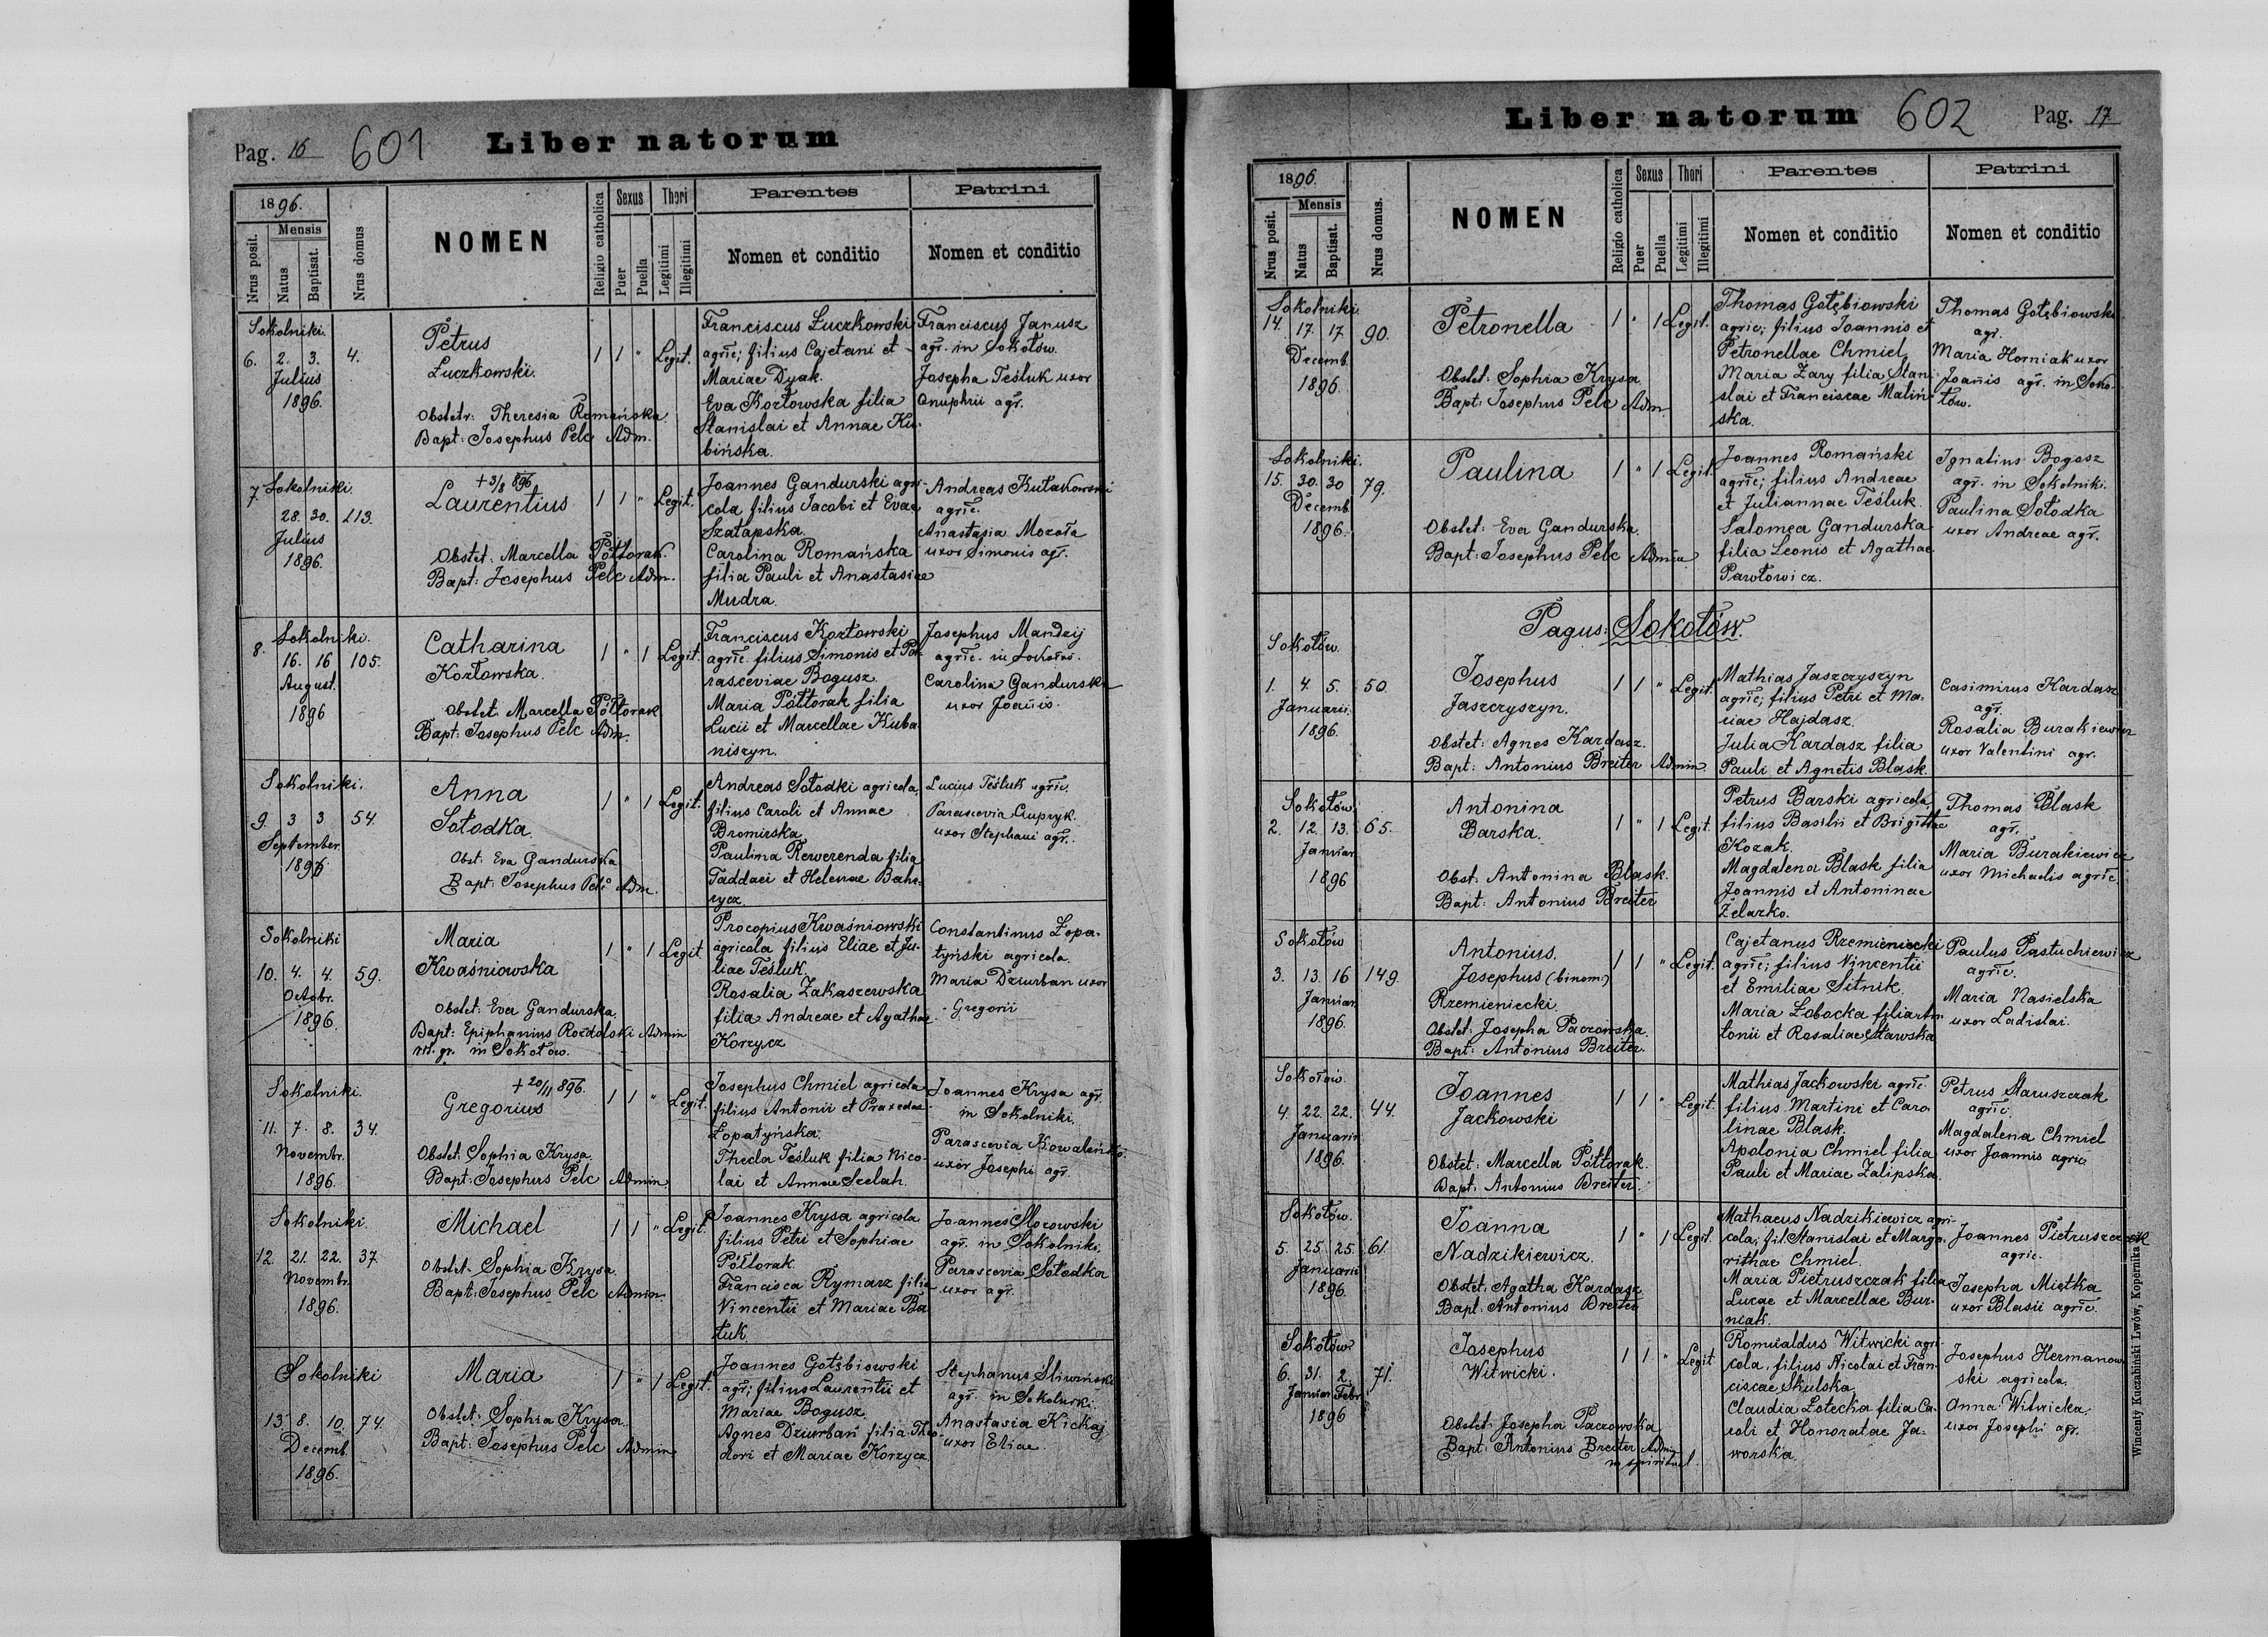 Pag. 16 601 Liber natorum
1896.
Nrus posit.
Mensis
Natus
Baptisat.
Nrus domus
NOMEN
Religio catholica
Sexus
Puer
Puella
Thori
Legitimi
Illegitimi
Parentes
Nomen et conditio
Patrini
Nomen et conditio
Sokolniki.
6. 2. 3. 4.
Julius
1896.
Petrus
Łuczkowski.
Obstetr: Theresia Romańska
Bapt: Josephus Pelc Adm.
1 1 " Legit.
Franciscus Łuczkowski
agric; filius Cajetani et
Mariae Dyak.
Eva Kozłowska filia
Stanislai et Annae Ku-
bińska.
Franciscus Janusz
agr. in Sokołów.
Josepha Teśluk uxor
Onuphrii agr.
7. Sokolniki.
28. 30. 113.
Julius
1896.
+ 3/8 896
Laurentius
Obstet: Marcella Półtorak.
Bapt: Josephus Pelc Adm.
1 1 " Legit.
Joannes Gandurski agri-
cola filius Jacobi et Evae
Szatapska.
Carolina Romańska
filia Pauli et Anastasiae
Mudra.
Andreas Kułakowski
agric.
Anastasia Mozoła
uxor Simonis agr.
Sokolniki.
8. 16. 16 105.
August.
1896
Catharina
Kozłowska.
Obstet: Marcella Półtorak
Bapt: Josephus Pelc Adm.
1 " 1 Legit.
Franciscus Kozłowski
agric. filius Simonis et Pa-
rasceviae Bogusz.
Maria Półtorak filia
Lucii et Marcellae Kuba
niszyn.
Josephus Mandzij
agric. in Sokołów.
Carolina Gandurska
uxor Joannis.
Sokolniki.
9. 3 3 54.
September.
1896
Anna
Sołodka.
Obst: Eva Gandurska
Bapt: Josephus Pelc Adm.
1 " 1 Legit.
Andreas Sołodki agricola,
filius Caroli et Annae
Bromirska
Paulina Rewerenda filia
Taddaei et Helenae Bahr-
ycz.
Lucius Teśluk agric.
Parascevia Cupryk.
uxor Stephani agr.
Sokolniki
10. 4. 4. 59.
Octobr.
1896.
Maria
Kwaśniowska
Obstet: Eva Gandurska.
Bapt: Epiphanius Rozdolski Admin
rit. gr. in Sokołów.
1 " 1 Legit
Procopius Kwaśniowski
agricola filius Eliae et Ju-
liae Teśluk.
Rosalia Zakaszewska
filia Andreae et Agathae
Korzycz
Constantinus Łopa-
tyński agricola.
Maria Dziurban uxor
Gregorii
Sokolniki.
11. 7. 8. 34.
Novembr.
1896.
+ 20/11 896.
Gregorius
Obstet: Sophia Krysa.
Bapt: Josephus Pelc Admin.
1 1 " Legit.
Josephus Chmiel agricola
filius Antonii et Praxedae
Łopatyńska.
Thecla Teśluk filia Nico-
lai et Annae Szelah.
Joannes Krysa agr.
in Sokolniki.
Parascevia Kowaleńko.
uxor Josephi agr.
Sokolniki.
12. 21. 22. 37.
Novembr.
1896.
Michael
Obstet. Sophia Krysa.
Bapt: Josephus Pelc Admin.
1 1 " Legit.
Joannes Krysa agricola
filius Petri et Sophiae
Półtorak.
Francisca Rymarz filia
Vincentii et Mariae Ba
tuk
Joannes Morowski
agr. in Sokolniki.
Parascevia Sołodka
uxor agr.
Sokolniki
13. 8. 10. 74.
Decemb.
1896.
Maria
Obstet. Sophia Krysa.
Bapt: Josephus Pelc Admin
1 " 1 Legit.
Joannes Gołębiowski
agr; filius Laurentii et
Mariae Bogusz.
Agnes Dziurban filia Theo-
dori et Mariae Korzycz
Stephanus Śliwiński
agr. in Sokolniki.
Anastasia Kickaj
uxor Eliae.
Liber natorum 602 Pag. 17
1896.
Nrus posit.
Mensis
Natus
Baptisat.
Nrus domus.
NOMEN
Religio catholica
Sexus
Puer
Puella
Thori
Legitimi
Illegitimi
Parentes
Nomen et conditio
Patrini
Nomen et conditio
Sokolniki
14. 17. 17 90.
Decemb.
1896.
Petronella
Obstet: Sophia Krysa.
Bapt: Josephus Pelc Adm.
1 " 1 Legit.
Thomas Gołębiowski
agric; filius Joannis et
Petronellae Chmiel
Maria Zary filia Stani-
slai et Franciscae Maliń-
ska.
Thomas Gołębiowski
agr.
Maria Horniak uxor
Joannis agr. in Soko-
łów.
Sokolniki.
15. 30. 30 79.
Decemb.
1896.
Paulina
Obstet: Eva Gandurska.
Bapt: Josephus Pelc Admin
1 " 1 Legit.
Joannes Romański
agric; filius Andreae
et Juliannae Teśluk.
Salomea Gandurska
filia Leonis et Agathae
Pawłowicz.
Ignatius Bogosz
agr. in Sokolniki.
Paulina Sołodka
uxor Andreae agr.
Pagus: Sokołów.
Sokołów.
1. 4. 5. 50.
Januarii.
1896.
Josephus
Jaszczyszyn.
Obstet: Agnes Kardasz.
Bapt: Antonius Breiter Admin.
1 1 " Legit.
Mathias Jaszczyszyn
agric; filius Petri et Ma-
riae Hajdasz.
Julia Kardasz filia
Pauli et Agnetis Blask.
Casimirus Kardasz
agr.
Rosalia Burakiewicz
uxor Valentini agr.
Sokołów
2. 12. 13. 65.
Januar
1896
Antonina
Barska.
Obst: Antonina Blask.
Bapt: Antonius Breiter
1 " 1 Legit.
Petrus Barski agricola,
filius Basilii et Brigittae
Kozak.
Magdalena Blask filia
Joannis et Antoninae
Żelazko.
Thomas Blask
agr.
Maria Burakiewicz
uxor Michaelis agric.
Sokołów
3. 13. 16 149.
Januar.
1896.
Antonius.
Josephus (binom:)
Rzemieniecki
Obstet: Josepha Paczowska.
Bapt: Antonius Breiter.
1 1 " Legit.
Cajetanus Rzemieniecki
agric; filius Vincentii
et Emiliae Sitnik.
Maria Łobocka filia An-
tonii et Rosaliae Stawska
Paulus Pastuchiewicz
agric.
Maria Nasielska
uxor Ladislai.
Sokołów.
4. 22. 22. 44.
Januarii
1896.
Joannes
Jackowski
Obstet: Marcella Półtorak.
Bapt: Antonius Breiter.
1 1 " Legit.
Mathias Jackowski agric.
filius Martini et Caro-
linae Blask.
Apolonia Chmiel filia
Pauli et Mariae Zalipska.
Petrus Staruszczak
agric.
Magdalena Chmiel
uxor Joannis agric
Sokołów.
5. 25. 25. 61.
Januarii
1896.
Joanna
Nadzikiewicz.
Obstet: Agatha Kardasz.
Bapt: Antonius Breiter
1 " 1 Legit.
Mathaeus Nadzikiewicz agri-
cola, fil Stanislai et Marga-
rithae Chmiel.
Maria Pietruszczak filia
Lucae et Marcellae Bur-
niak.
Joannes Pietruszczak
agric.
Josepha Miętka
uxor Blasii agric.
Sokołów
6. 31. 2. 71.
Januar Febr.
1896
Josephus
Witwicki.
Obstet: Josepha Paczowska
Bapt: Antonius Breiter Admin
in spiritual.
1 1 " Legit
Romualdus Witwicki agri-
cola, filius Nicolai et Fran-
ciscae Skulska
Claudia Łotecka filia Ca-
roli et Honoratae Ja-
worska.
Josephus Hermanow-
ski agricola.
Anna Witwicka.
uxor Josephi agr.
Wincenty Kuczabiński Lwów, Kopernika